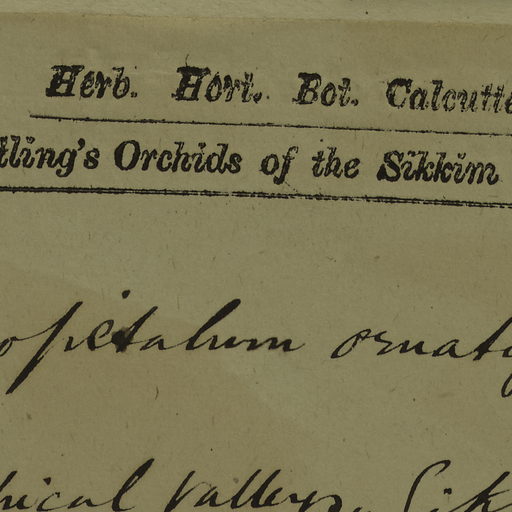 Herb. Hort. Bot. Calcutte
tling's Orchids of the Sikkim
opetalum ornat
pical valleys. Sik